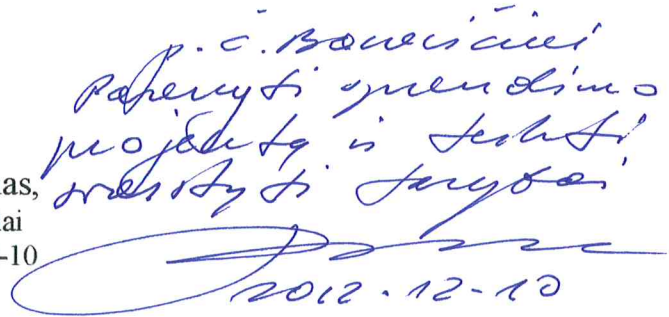 p. Č. Banevičiui
Parengti sprendimo
projektą ir teikti
svarstyti tarybai
as,
ai
-10
2012-12-10